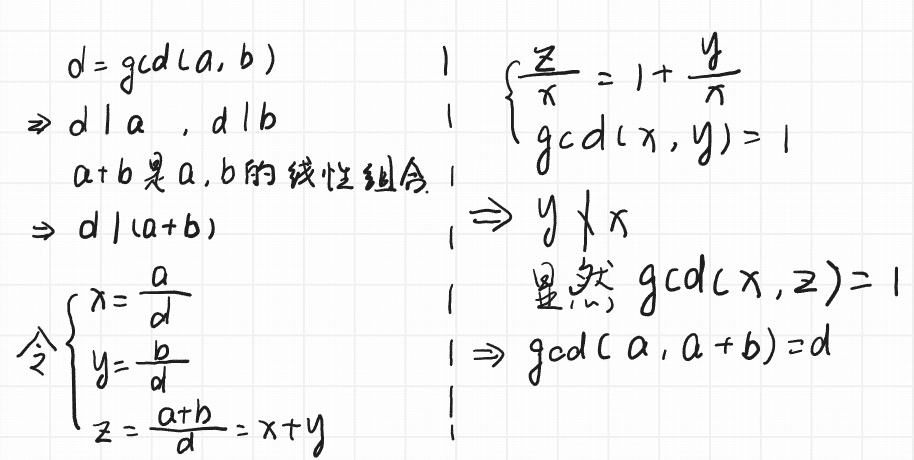 d = gcd(a, b)
⇒ d | a , d | b
a+b是a,b的线性组合
⇒ d | (a+b)
令 { x = a/d
y = b/d
z = (a+b)/d = x+y
{ z/x = 1 + y/x
gcd(x, y) = 1
⇒ y ∤ x
显然 gcd(x, z) = 1
⇒ gcd(a, a+b) = d